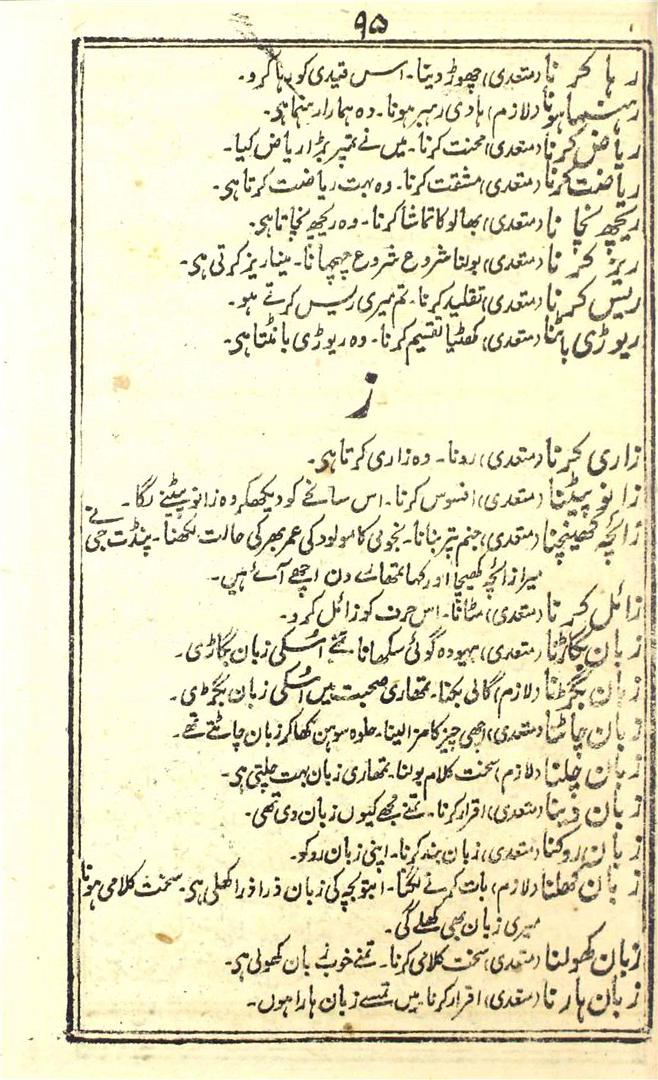 ۹۵
رہا کرنا (متعدی) چھوڑ دینا۔ اس قیدی کو رہا کرو۔
رہنما ہونا (لازم) ہادی رہبر ہونا۔ وہ ہمارا رہنما ہی۔
ریاض کرنا (متعدی) محنت کرنا۔ میں نے تمپر بڑا ریاض کیا۔
ریاضت کرنا (متعدی) مشقت کرنا۔ وہ بہت ریاضت کرتا ہی۔
ریچھ نچانا (متعدی) بھالو کا تماشا کرنا۔ وہ ریچھ نچاتا ہی۔
ریز کرنا (متعدی) بولنا شروع شروع چہچہانا۔ مینا ریز کرتی ہی۔
ریس کرنا (متعدی) تقلید کرنا۔ تم میری ریس کرتے ہو۔
ریوڑی بانٹنا (متعدی) گھٹیا تقسیم کرنا۔ وہ ریوڑی بانٹتا ہی۔
ز
زاری کرنا (متعدی) رونا۔ وہ زاری کرتا ہی۔
زانو پیٹنا (متعدی) افسوس کرنا۔ اس سانحے کو دیکھکر وہ زانو پیٹنے لگا۔
زائچہ کھینچنا (متعدی) جنم پتر بنانا۔ نجومی کا مولود کی عمر بھر کی حالت لکھنا۔ پنڈت جی نے
میرا زائچہ کھینچا اور کہا تمھارے دن اچھے آئے ہیں۔
زائل کرنا (متعدی) مٹانا۔ اس حرف کو زائل کرو۔
زبان بگاڑنا (متعدی) بیہودہ گوئی سکھانا۔ تمنے اُسکی زبان بگاڑی۔
زبان بگڑنا (لازم) گالی بکنا۔ تمھاری صحبت میں اُسکی زبان بگڑی۔
زبان چاٹنا (متعدی) اچھی چیز کا مزا لینا۔ حلوہ سوہن کھا کر زبان چاٹتے تھے۔
زبان چلنا (لازم) سخت کلام بولنا۔ تمھاری زبان بہت چلتی ہی۔
زبان دینا (متعدی) اقرار کرنا۔ تمنے مجھے کیوں زبان دی تھی۔
زبان روکنا (متعدی) زبان بند کرنا۔ اپنی زبان روکو۔
زبان کھلنا (لازم) بات کرنے لگنا۔ ابتو بچہ کی زبان ذرا ذرا کھلی ہی۔ سخت کلامی ہونا
میری زبان بھی کھلے گی۔
زبان کھولنا (متعدی) سخت کلامی کرنا۔ تمنے خوب زبان کھولی ہی۔
زبان ہارنا (متعدی) اقرار کرنا۔ میں تمسے زبان ہارا ہوں۔